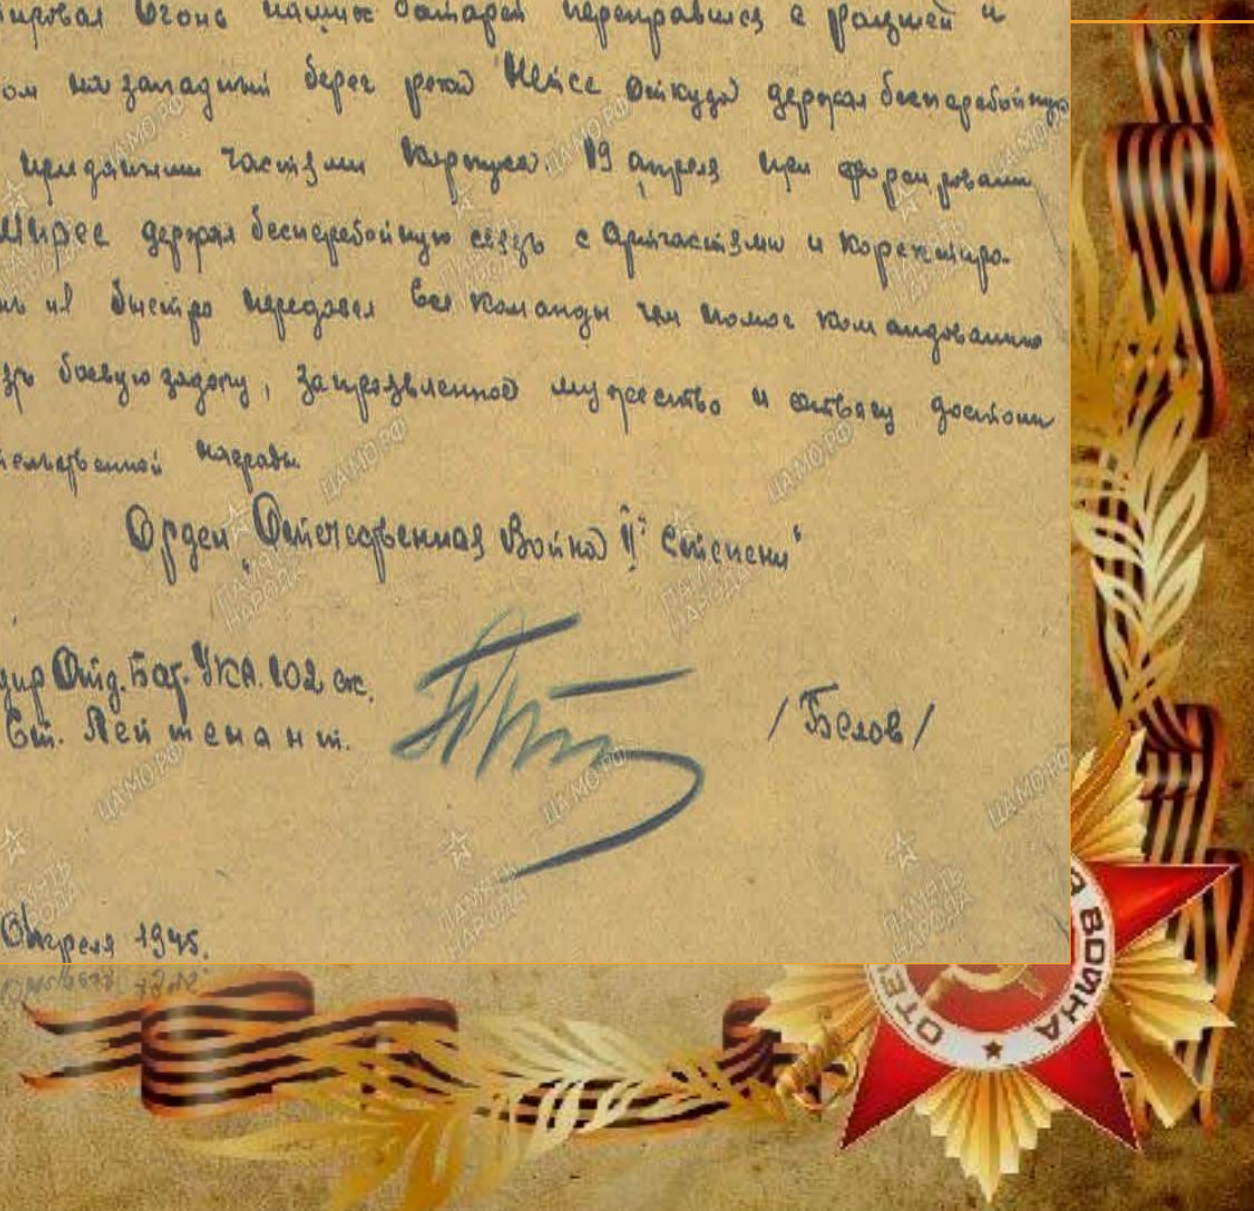 тировал огонь наших батарей переправился с рацией и
ом на западный берег реки Нейсе откуда держал бесперебойную
приданными частями Корпуса. 19 апреля при форсировании
Шпрее держал бесперебойную связь с Артчастями и коректиро-
быстро передавал все команды чем помог командованию
боевую задачу, за проявленное мужество и отвагу достоин
ительственной награды
Орден „Отечественная Война II" степени"
дир Отд. Бат. УКА. 102 ск.
Ст. Лейтенант.
/Белов/
Апреля 1945.
ЦАМО РФ
ПАМЯТЬ НАРОДА
ОТЕ ВОЙНА